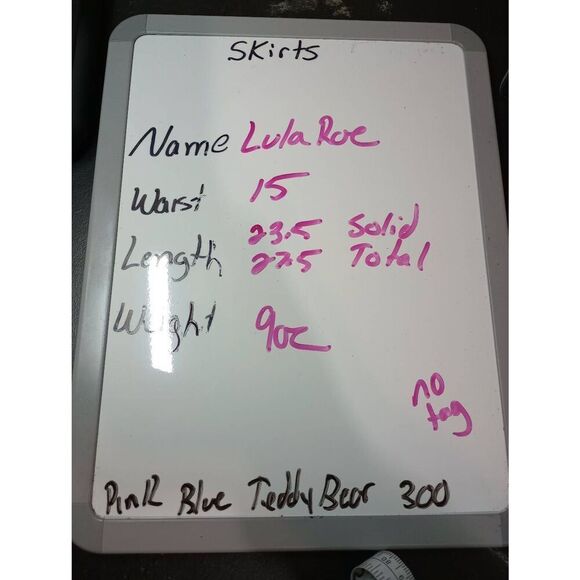 Skirts
Name LulaRoe
Waist 15
23.5 Solid
Length 27.5 Total
Weight 9oz
no
tag
Pink Blue Teddy Bear 300